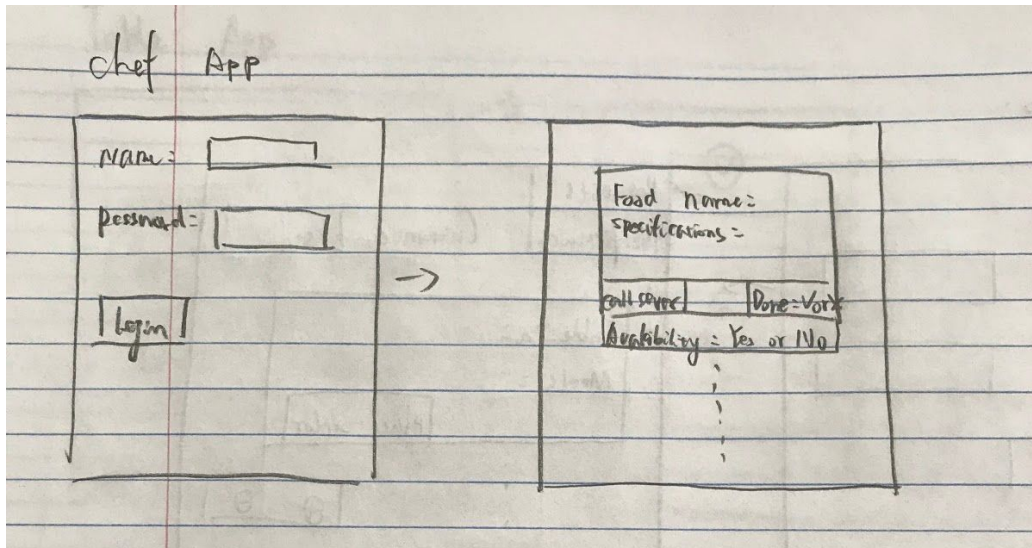 Chef App
Name:
Password:
Login
Food name:
Specifications:
call server
Done: V or X
Availibility: Yes or No